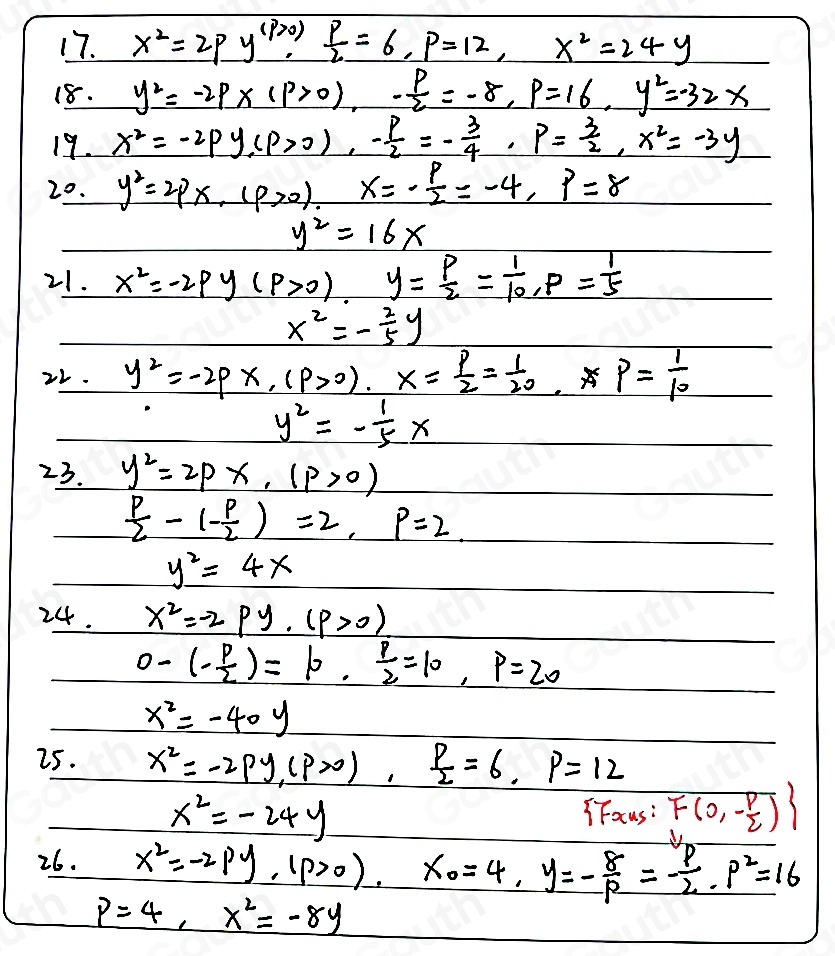 17. x² = 2py (p>0), p/2 = 6, p=12, x² = 24y
18. y² = -2px (p>0), -p/2 = -8, p=16, y²=-32x
19. x² = -2py, (p>0), -p/2 = -3/4, p = 3/2, x² = -3y
20. y²=2px, (p>0). x = -p/2 = -4, p = 8
y² = 16x
21. x² = -2py (p>0). y = p/2 = 1/10, p = 1/5
x² = -2/5 y
22. y² = -2px, (p>0). x = p/2 = 1/20, p = 1/10
y² = -1/5 x
23. y² = 2px, (p>0)
p/2 - (-p/2) = 2, p=2.
y² = 4x
24. x² = -2py. (p>0)
0-(-p/2) = 10. p/2 = 10, p=20
x² = -40y
25. x² = -2py, (p>0), p/2 = 6, p=12
x² = -24y
{Focus: F(0, -p/2)}
26. x² = -2py, (p>0). x₀=4, y = -8/p = -p/2. p²=16
p=4, x² = -8y